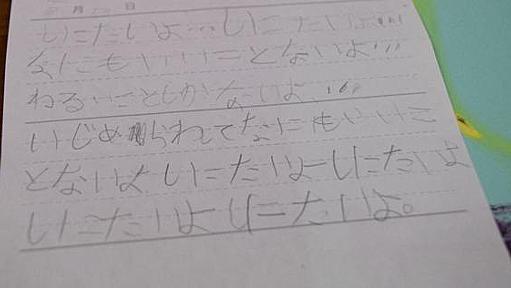 月 日
しにたいよ…しにたいよ…
なにもいいことないよ…
わるいことしかないよ…
いじめられてなにもいいこ
とないよ しにたいよーしにたいよ
しにたいよしにたいよ。